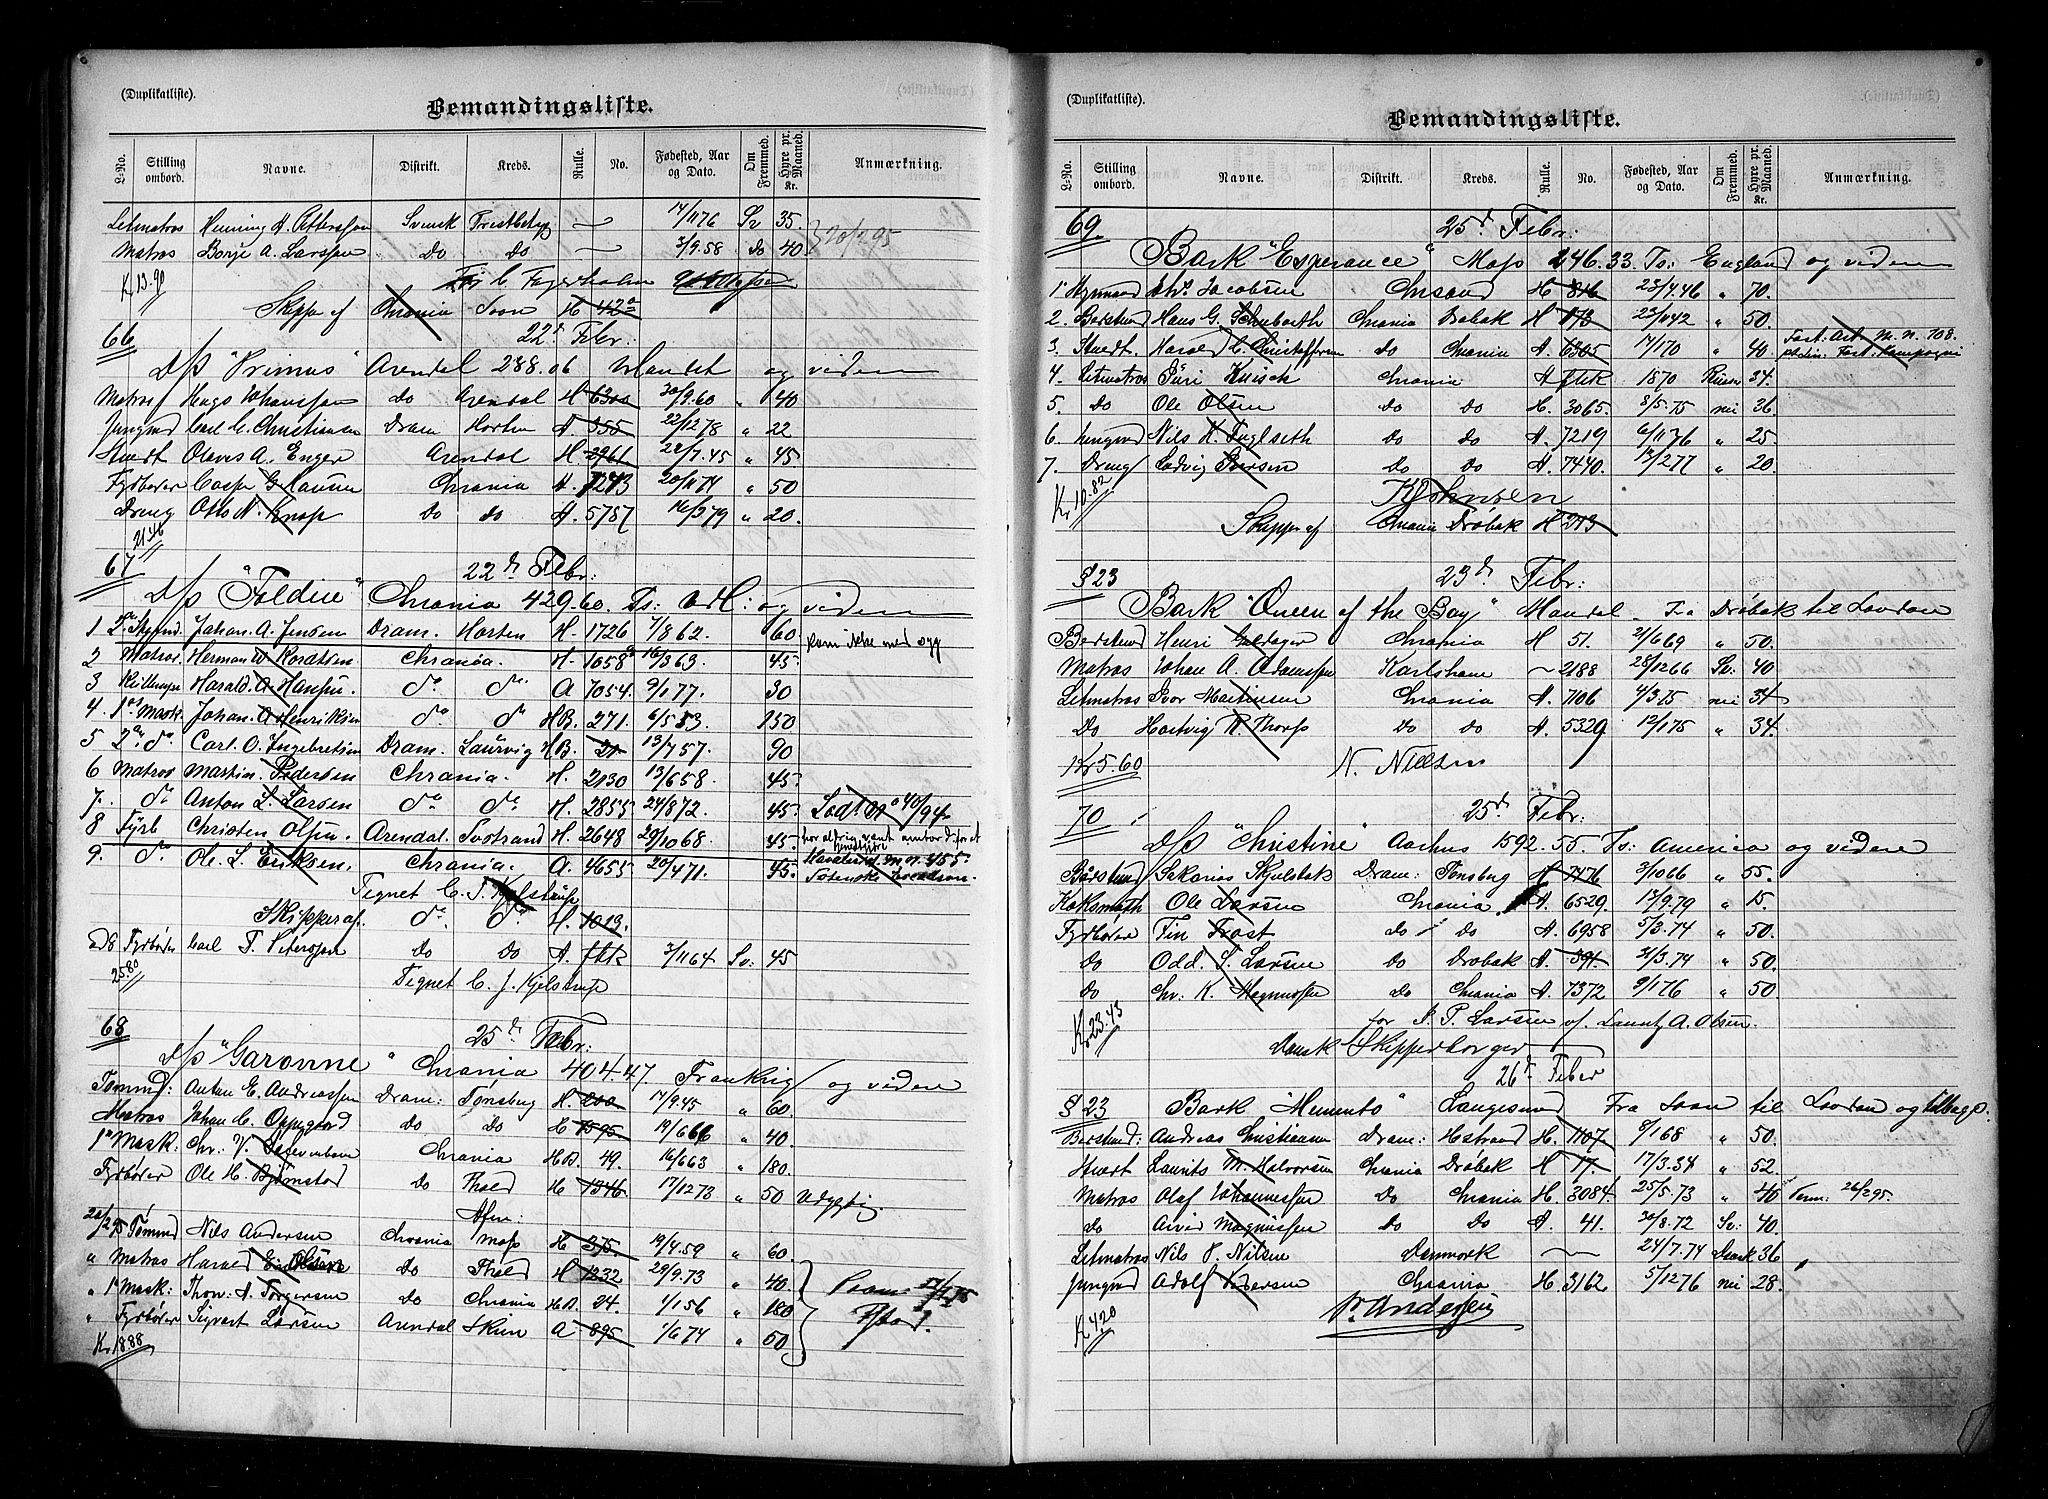 (Duplikatliste).
Bemandingsliste.
L-No. Stilling ombord. Navne. Distrikt. Kreds. Rulle. No. Fødested, Aar og Dato. Om Fremmed. Hyre pr. Maaned. Kr. Anmærkning.
Letmatros Henning A. Petterssen Svensk 14/11 76 Sv 35.
Matros Borje A. Larssen Do Do 3/9.58 Do 40 20/2 95
Kr 13.90 C Fagerholm
Skipper af Chrania Soon H 42a
66 22d Febr.
D/S "Primus" Arendal 238.06 Udlandet og videre
Matros Hugo Johanssen Do Arendal H 6300 30/9.60 " 40
Jungmd Carl C. Christiansen Dram Horten A. 355 22/12 78 " 22
Stuert Olaves A. Enger Arendal H. 2961 22/7.45 " 45
Fyrbøter Casper G. Hansen Chrania A. 7243 20/11 74 " 50
Dreng Otto N. Knap Do do A. 5787 16/3 79 " 20.
21.46
67 22d Febr:
D/S "Foldin" Chrania 429.60. Ts: Udl: og videre
1 2n Styrmd. Johan. A. Jensen Dram. Horten H. 1726 7/8 62. 60 kom ikke med syg
2 Matros Herman W. Kordtsen Chrania. H. 1058 16/3 63. 45.
3 Harald. A. Hansen. do do A 7054. 9/1 77. 30
4 1e Mask. Johan. A. Henriksen do do H.B. 271. 6/5 53. 150
5 2en do Carl. O. Ingebretsen Dram. Laurvig H.B. 21. 13/7 57. 90
6 Matros Martin. Pedersen Chrania. H. 2130 13/6 58. 45.
7. do Anton L. Larsen do do H. 2855 24/8 72. 45.
8 Fyrb Christen Olsen. Arendal. H. 2648 29/10 68. 45.
9. do Ole. L. Eriksen. Chrania. A. 4655 20/4 71. 45.
Tegnet C. J. Kjelstrup
Skipper af. do do H. 1013.
Fyrbøter Carl F. Peterssen Do Do A. fhk 3/11 64 Sv: 45
25.80
Tegnet C. J. Kjelstrup
68 25de Febr:
D/S "Garonne" Chrania 404.47. Frankrig og videre
Tømmd: Anton E. Andreassen Dram: Tønsberg H. 200 17/9.45 " 60
Matros Johan C. Oppegaard Do Do H 1595 19/6 66 " 40.
1e Mask: Chr: V. Chrania H.B. 49. 16/6 63 " 180.
Fyrbøter Ole H. Bjørnstad Do H 1346 17/12 73 " 50 Udygtig
22/2 95 Tømmd Nils Andersen Chrania Moss H 375. 19/4.59 " 60.
" Matros Harald Do H 1232 29/9.73 " 40.
" 1e Mask: Thor: A. Torgersen Do Chrania H.B. 24. 1/1 56 " 180
" Fyrbøter Sigvart Larsen Arendal Skien A 895 1/6 74 " 50
Kr 18.88
(Duplikatliste).
Bemandingsliste.
L-No. Stilling ombord. Navne. Distrikt. Kreds. Rulle. No. Fødested, Aar og Dato. Om Fremmed. Hyre pr. Maaned. Kr. Anmærkning.
69 25d Febr:
Bark "Esperance" Moss 246.33. Ts: England og videre
1 Styrmand Chr. Jacobsen Chrsand H 816 23/4.46 " 70.
2. Baadsmd Hans G. Schubarth Chrania Drøbak H 173 23/11 42 " 50.
3. Stuert. Harald C. Christoffersen do Chrania A. 6305 14/1 70 " 40
4. Letmatros Chrania A fhk 1870 34.
5. Do Ole Olsen Do Do H. 3065. 8/5.75 nei 36.
6. Jungmd Nils H. Fuglseth do do A. 7219 6/11 76 " 25.
7. Dreng Ludvig Iversen Do Do A. 7440. 12/2 77 " 20.
Kr. 10.82
K Johnsen
Skipper af Chrania Drøbak H 213
§ 23 23d Febr:
Bark "Queen of the Bay" Mandal. Fra Drøbak til London
Baadsmd Henri Chrania H 51. 2/6 69 " 50.
Matros Johan A. Adamssen Karlshavn 2188 28/12 66 Sv. 40
Letmatros Ivor Martinsen Chrania A. 7106 4/3 75 nei 34
Do Hartvig R. Thorp Do Do A. 5329 12/1 75 " 34.
Kr 5.60 N. Nielsen
70 25de Febr.
D/S "Christine" Aarhus 1592.55. Ts: America og videre
Baadsmd Dram: Tønsberg H 7476 3/10 66 " 55.
Koksmath Ole Larsen Chrania A. 6529. 17/9.79 " 15.
Fyrbøter Fin Frost do do A. 6958 5/3.74 " 50.
Do Odd. S. Larsen Do Drøbak A. 391. 31/3.74 " 50.
Do Chr: K. Magnussen Do Chrania A. 7372 9/1 76 " 50.
Kr 23.43
for J. P. Larsen af. A. Olsen.
Dansk Skipperborger
26de Febr
§ 23 Bark "Memento" Langesund Fra Soon til London og tilbage.
Baadsmd: Andreas Christiansen Dram: H. 1107 8/1 68 " 50.
Stuert Laurits M. Halvorsen Chrania Drøbak H 17. 17/3.34 " 52.
Matros Olaf Johannessen Do Chrania H. 3084. 25/5.73 " 40 26/2 95.
Do Arvid Magnussen Do Do A. 41. 30/8.72 Sv: 40.
Letmatros Nils P. Nilsen Danmark 24/7.74 Dansk 36
Jungmd Adolf Pedersen Chrania H. 3162 5/12 76 nei 28.
Kr 4.20
Andersen